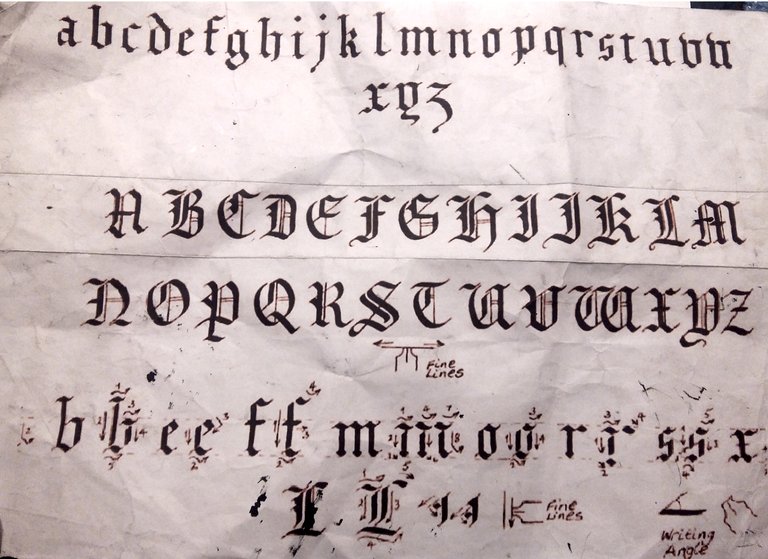 a b c d e f g h i j k l m n o p q r s t u v w
x y z
A B C D E F G H I J K L M
N O P Q R S T U V W X Y Z
Fine
Lines
b h e e f f m m o o r r s s x
L L
Fine
Lines
Writing
Angle